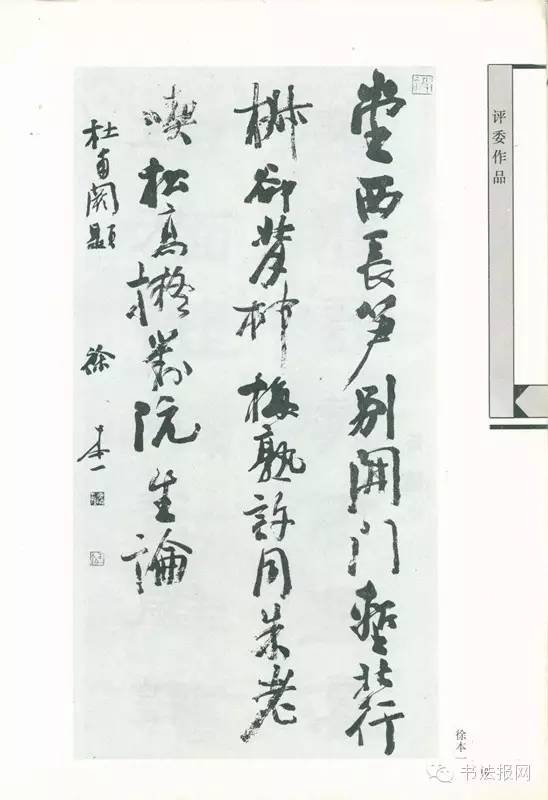 评委作品
堂西長笋别開门塹北行
椒卻背村梅熟許同朱老
喫松高擬對阮生論
杜甫阙題 徐本一
徐本一
书法报网